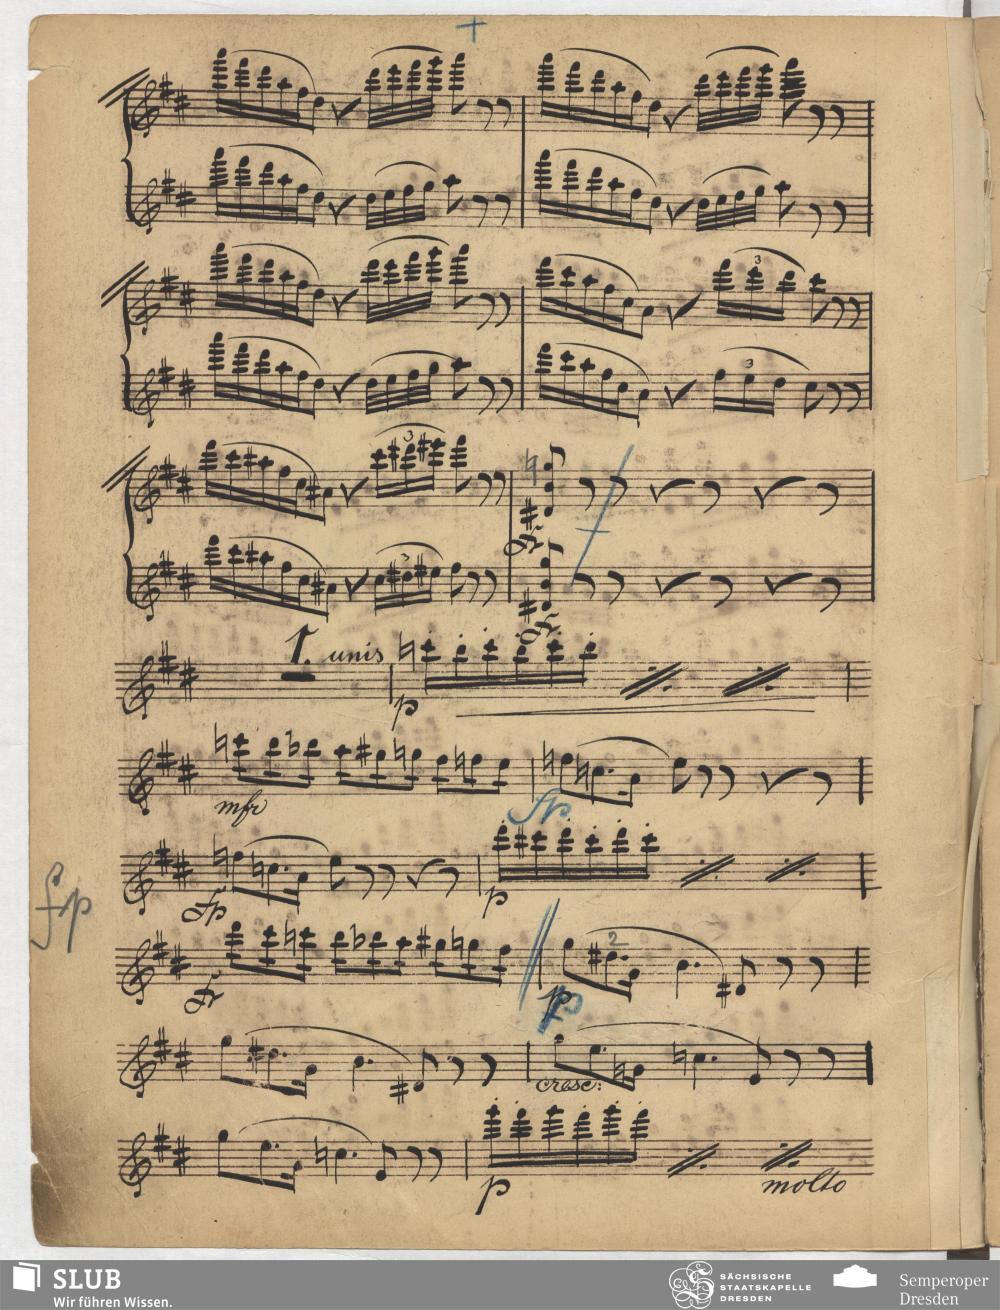 +
3
3
3
3
fr
fr
1. unis
p
mfr
fp
fp
p
fp
fr
2
p
cresc:
p
molto
SLUB
Wir führen Wissen.
SÄCHSISCHE
STAATSKAPELLE
DRESDEN
Semperoper
Dresden